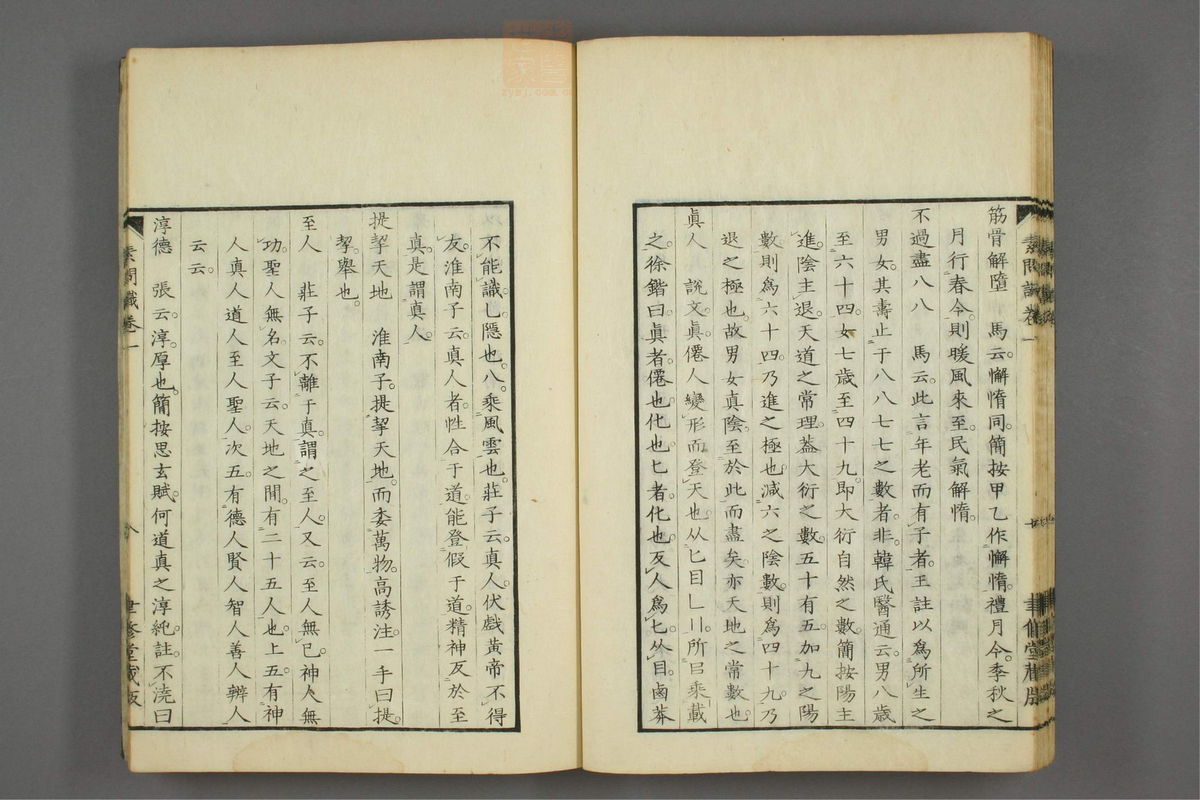 筋骨解墮　馬云。懈惰同。簡按甲乙作懈惰。禮月令。季秋之
月行春令。則暖風來至。民氣解惰。
不過盡八八　馬云。此言年老而有子者。王註以爲所生之
男女。其壽止于八八七七之數者。非。韓氏醫通云。男八歲
至六十四。女七歲至四十九。即大衍自然之數。簡按陽主
進。陰主退。天道之常理。蓋大衍之數。五十有五。加九之陽
數。則爲六十四。乃進之極也。減六之陰數。則爲四十九。乃
退之極也。故男女真陰。至於此而盡矣。亦天地之常數也
眞人　說文。眞。僊人變形而登天也。从匕目乚。所㠯乘載
之。徐鍇曰。眞者。僊也。化也。匕者。化也。反人爲匕。从目。鹵莽
不能識。乚隱也。八。乘風雲也。莊子云。真人。伏戲黃帝不得
友。淮南子云。真人者。性合于道。能登假于道。精神反於至
真。是謂真人。
提挈天地　淮南子。提挈天地。而委萬物。高誘注。一手曰提。
挈。舉也。
至人　莊子云。不離于真。謂之至人。又云。至人無己。神人無
功。聖人無名。文子云。天地之間。有二十五人也。上五有神
人真人道人至人聖人。次五有德人賢人智人善人辨人
云云。
淳德　張云。淳。厚也。簡按思玄賦。何道真之淳純。註。不澆曰
素問識卷一
八
聿修堂藏版
素問識卷一
聿修堂藏版